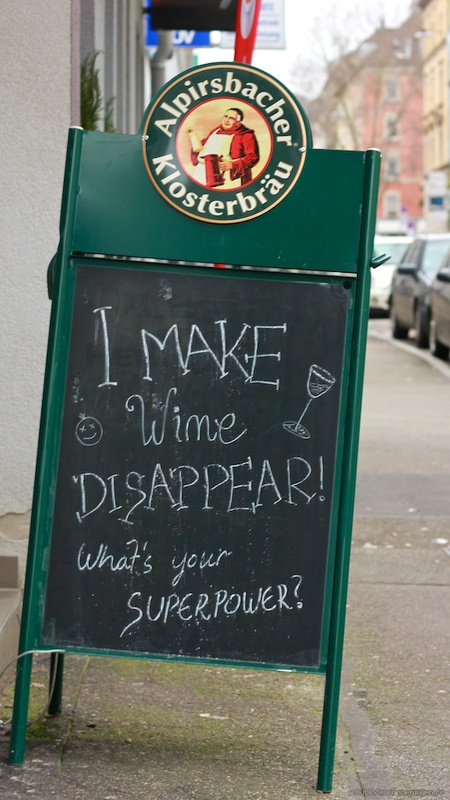 Alpirsbacher
Klosterbräu
I MAKE
Wine
DISAPPEAR!
What's your
SUPERPOWER?